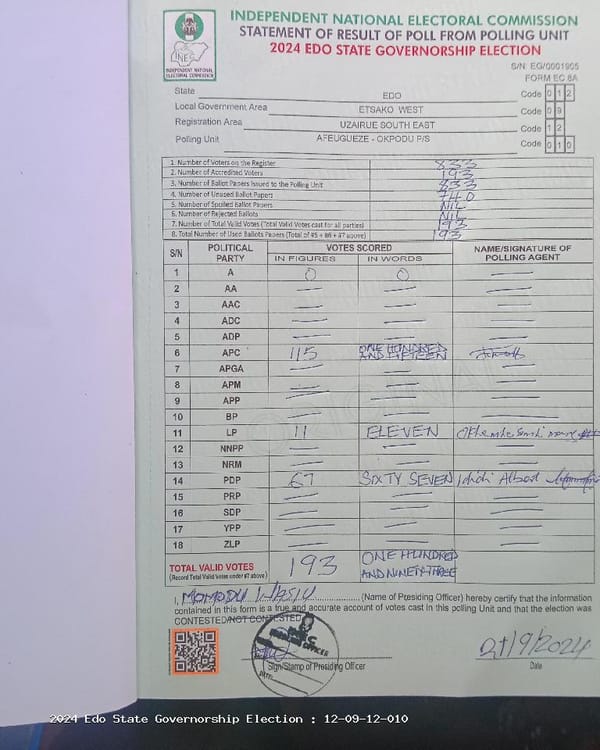 INDEPENDENT NATIONAL ELECTORAL COMMISSION
STATEMENT OF RESULT OF POLL FROM POLLING UNIT
2024 EDO STATE GOVERNORSHIP ELECTION
INEC
INDEPENDENT NATIONAL ELECTORAL COMMISSION
S/N: EG/0001905
FORM EC 8A
State EDO Code 0 1 2
Local Government Area ETSAKO WEST Code 0 9
Registration Area UZAIRUE SOUTH EAST Code 1 2
Polling Unit AFEUGUEZE - OKPODU P/S Code 0 1 0
1. Number of Voters on the Register 833
2. Number of Accredited Voters 193
3. Number of Ballot Papers Issued to the Polling Unit 833
4. Number of Unused Ballot Papers
5. Number of Spoiled Ballot Papers NIL
6. Number of Rejected Ballots NIL
7. Number of Total Valid Votes (Total Valid Votes cast for all parties) 193
8. Total Number of Used Ballots Papers (Total of #5 + #6 + #7 above) 193
S/N POLITICAL PARTY VOTES SCORED NAME/SIGNATURE OF POLLING AGENT
IN FIGURES IN WORDS
1 A 0 0
2 AA
3 AAC
4 ADC
5 ADP
6 APC 115 ONE HUNDRED AND FIFTEEN
7 APGA
8 APM
9 APP
10 BP
11 LP 11 ELEVEN
12 NNPP
13 NRM
14 PDP 67 SIXTY SEVEN Albert
15 PRP
16 SDP
17 YPP
18 ZLP
TOTAL VALID VOTES 193 ONE HUNDRED AND NINETY THREE
(Record Total Valid Votes under #7 above)
I, MOMODU (Name of Presiding Officer) hereby certify that the information
contained in this form is a true and accurate account of votes cast in this polling Unit and that the election was
CONTESTED/NOT CONTESTED
Sign/Stamp of Presiding Officer
/9/2024
Date
2024 Edo State Governorship Election : 12-09-12-010